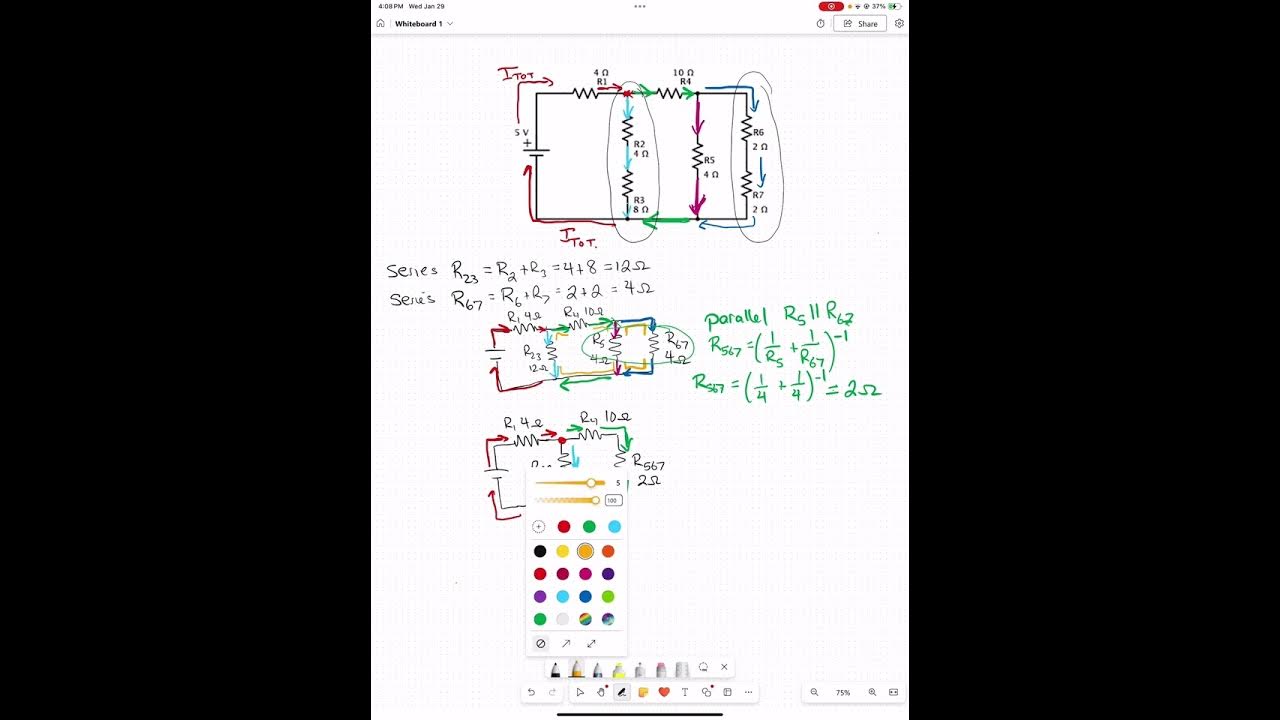 4:08 PM Wed Jan 29
37%
Whiteboard 1
Share
I TOT
4 Ω
R1
10 Ω
R4
5 V
+
R2
4 Ω
R3
8 Ω
R5
4 Ω
R6
2 Ω
R7
2 Ω
I TOT.
Series R23 = R2 + R3 = 4 + 8 = 12Ω
Series R67 = R6 + R7 = 2 + 2 = 4Ω
R1 4Ω
R4 10Ω
R23
12Ω
R5
4Ω
R67
4Ω
parallel R5 || R67
R567 = (1/R5 + 1/R67)^-1
R567 = (1/4 + 1/4)^-1 = 2Ω
R1 4Ω
R4 10Ω
R567
2Ω
5
100
75%